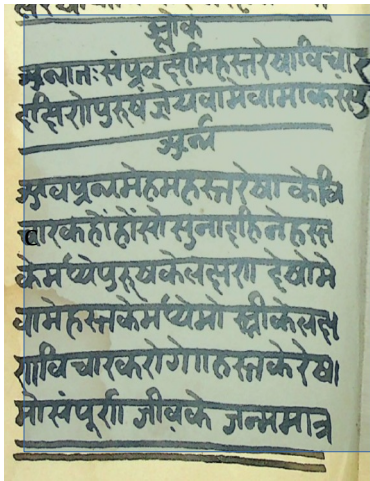 श्लोक
अथातः संप्रवक्ष्यामि हस्तरेखाविचार
दक्षिणे पुरुषं ज्ञेयं वामे वामाकरस्यु
अर्थ
अब प्रथमे हम हस्तरेषा के वि
चार कहों हों सो सुना दहिने हस्त
के मध्ये पुरुष के लक्षण देखो मे
वामे हस्त के मध्ये मो स्त्री के लक्ष
ण विचार करोगे हस्त के रेषा
मो संपूर्ण जीव के जन्म मात्र